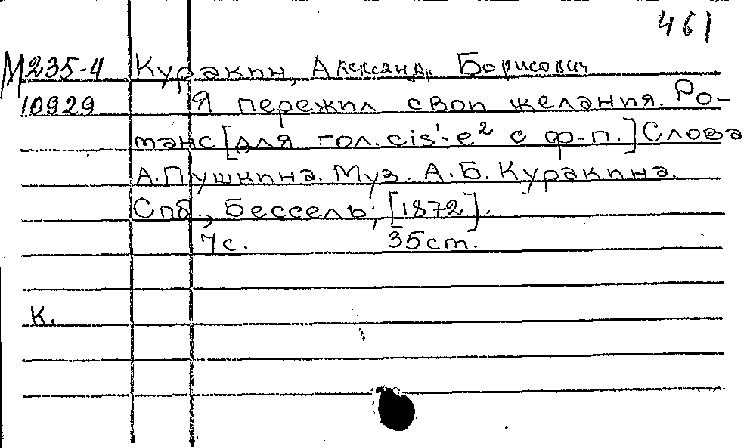 461
М235-4 Куракин, Александр Борисович
10929 Я пережил свои желания. Ро-
манс [для гол. cis¹-e² с ф-п.] Слова
А. Пушкина. Муз. А. Б. Куракина.
Спб, Бессель, [1872].
7с. 35ст.
К.